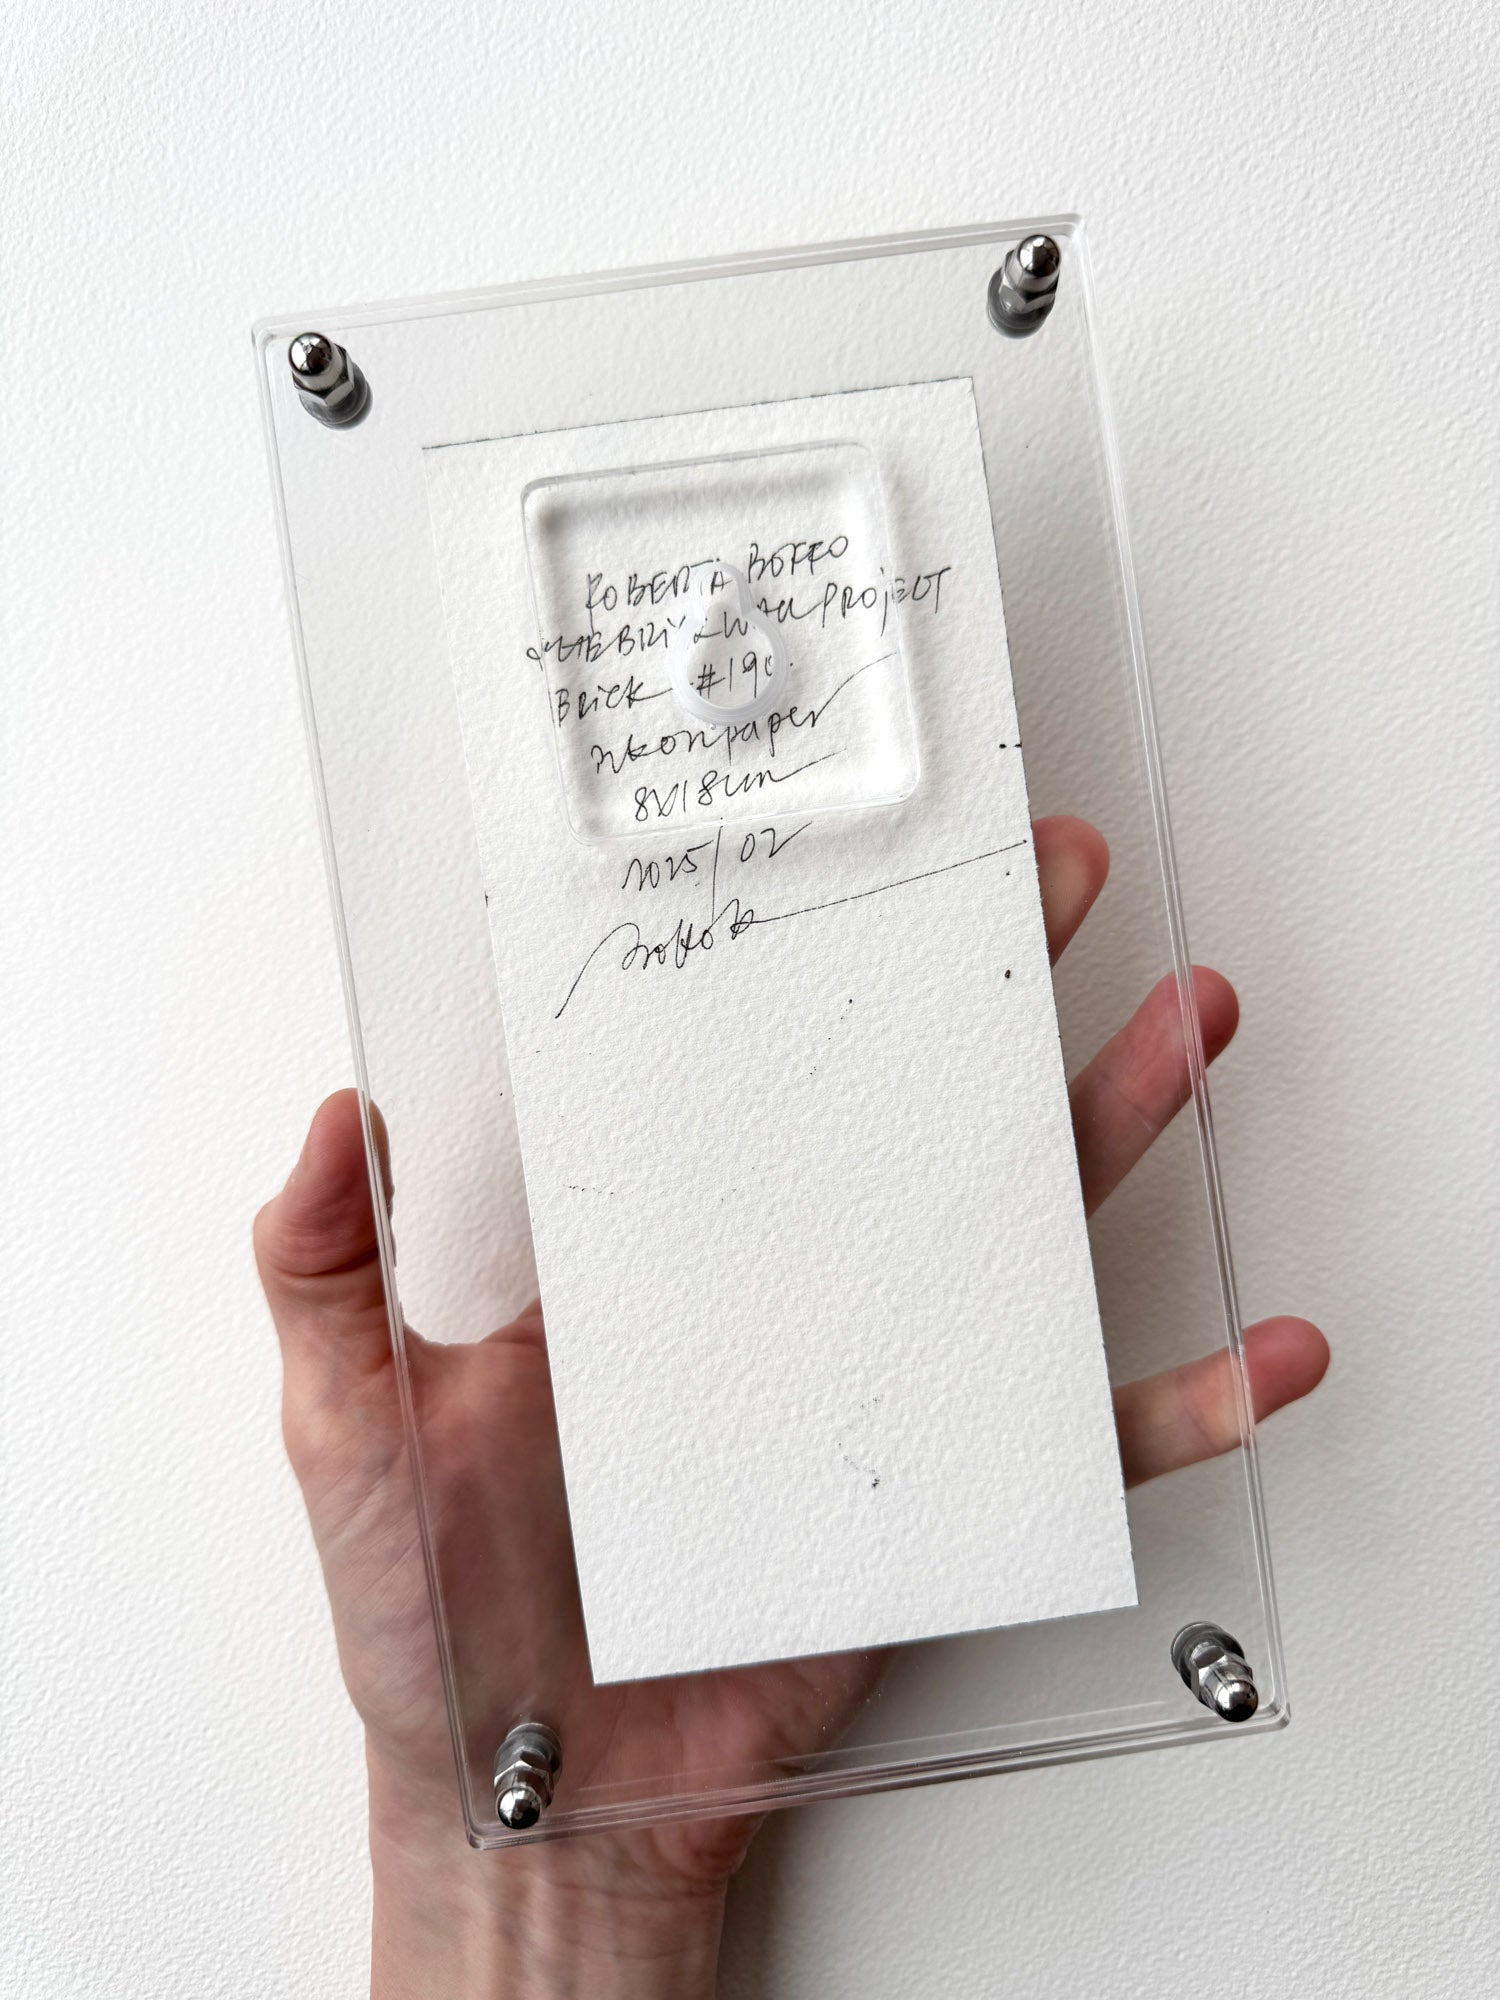 ROBERTA BOFFO
THE BRICK WALL PROJECT
Brick #190
ink on paper
8x18cm
2025/02